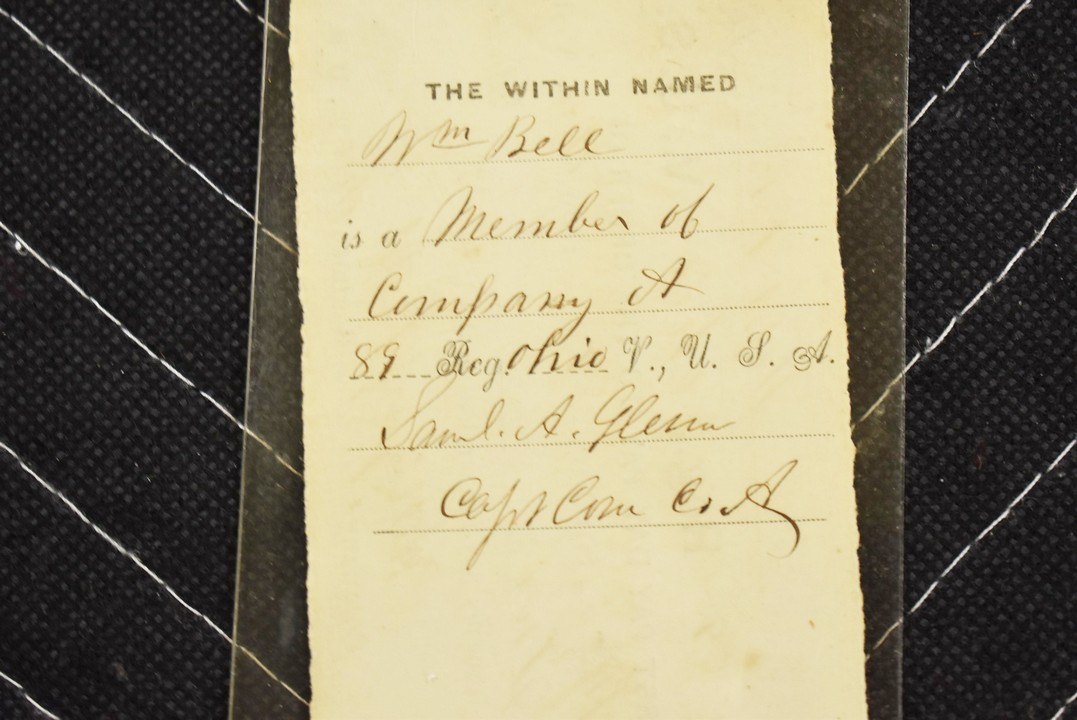 THE WITHIN NAMED
Wm Bell
is a Member of
Company A
89 Reg. Ohio V., U. S. A.
Saml. A. Glenn
Capt Com Co. A